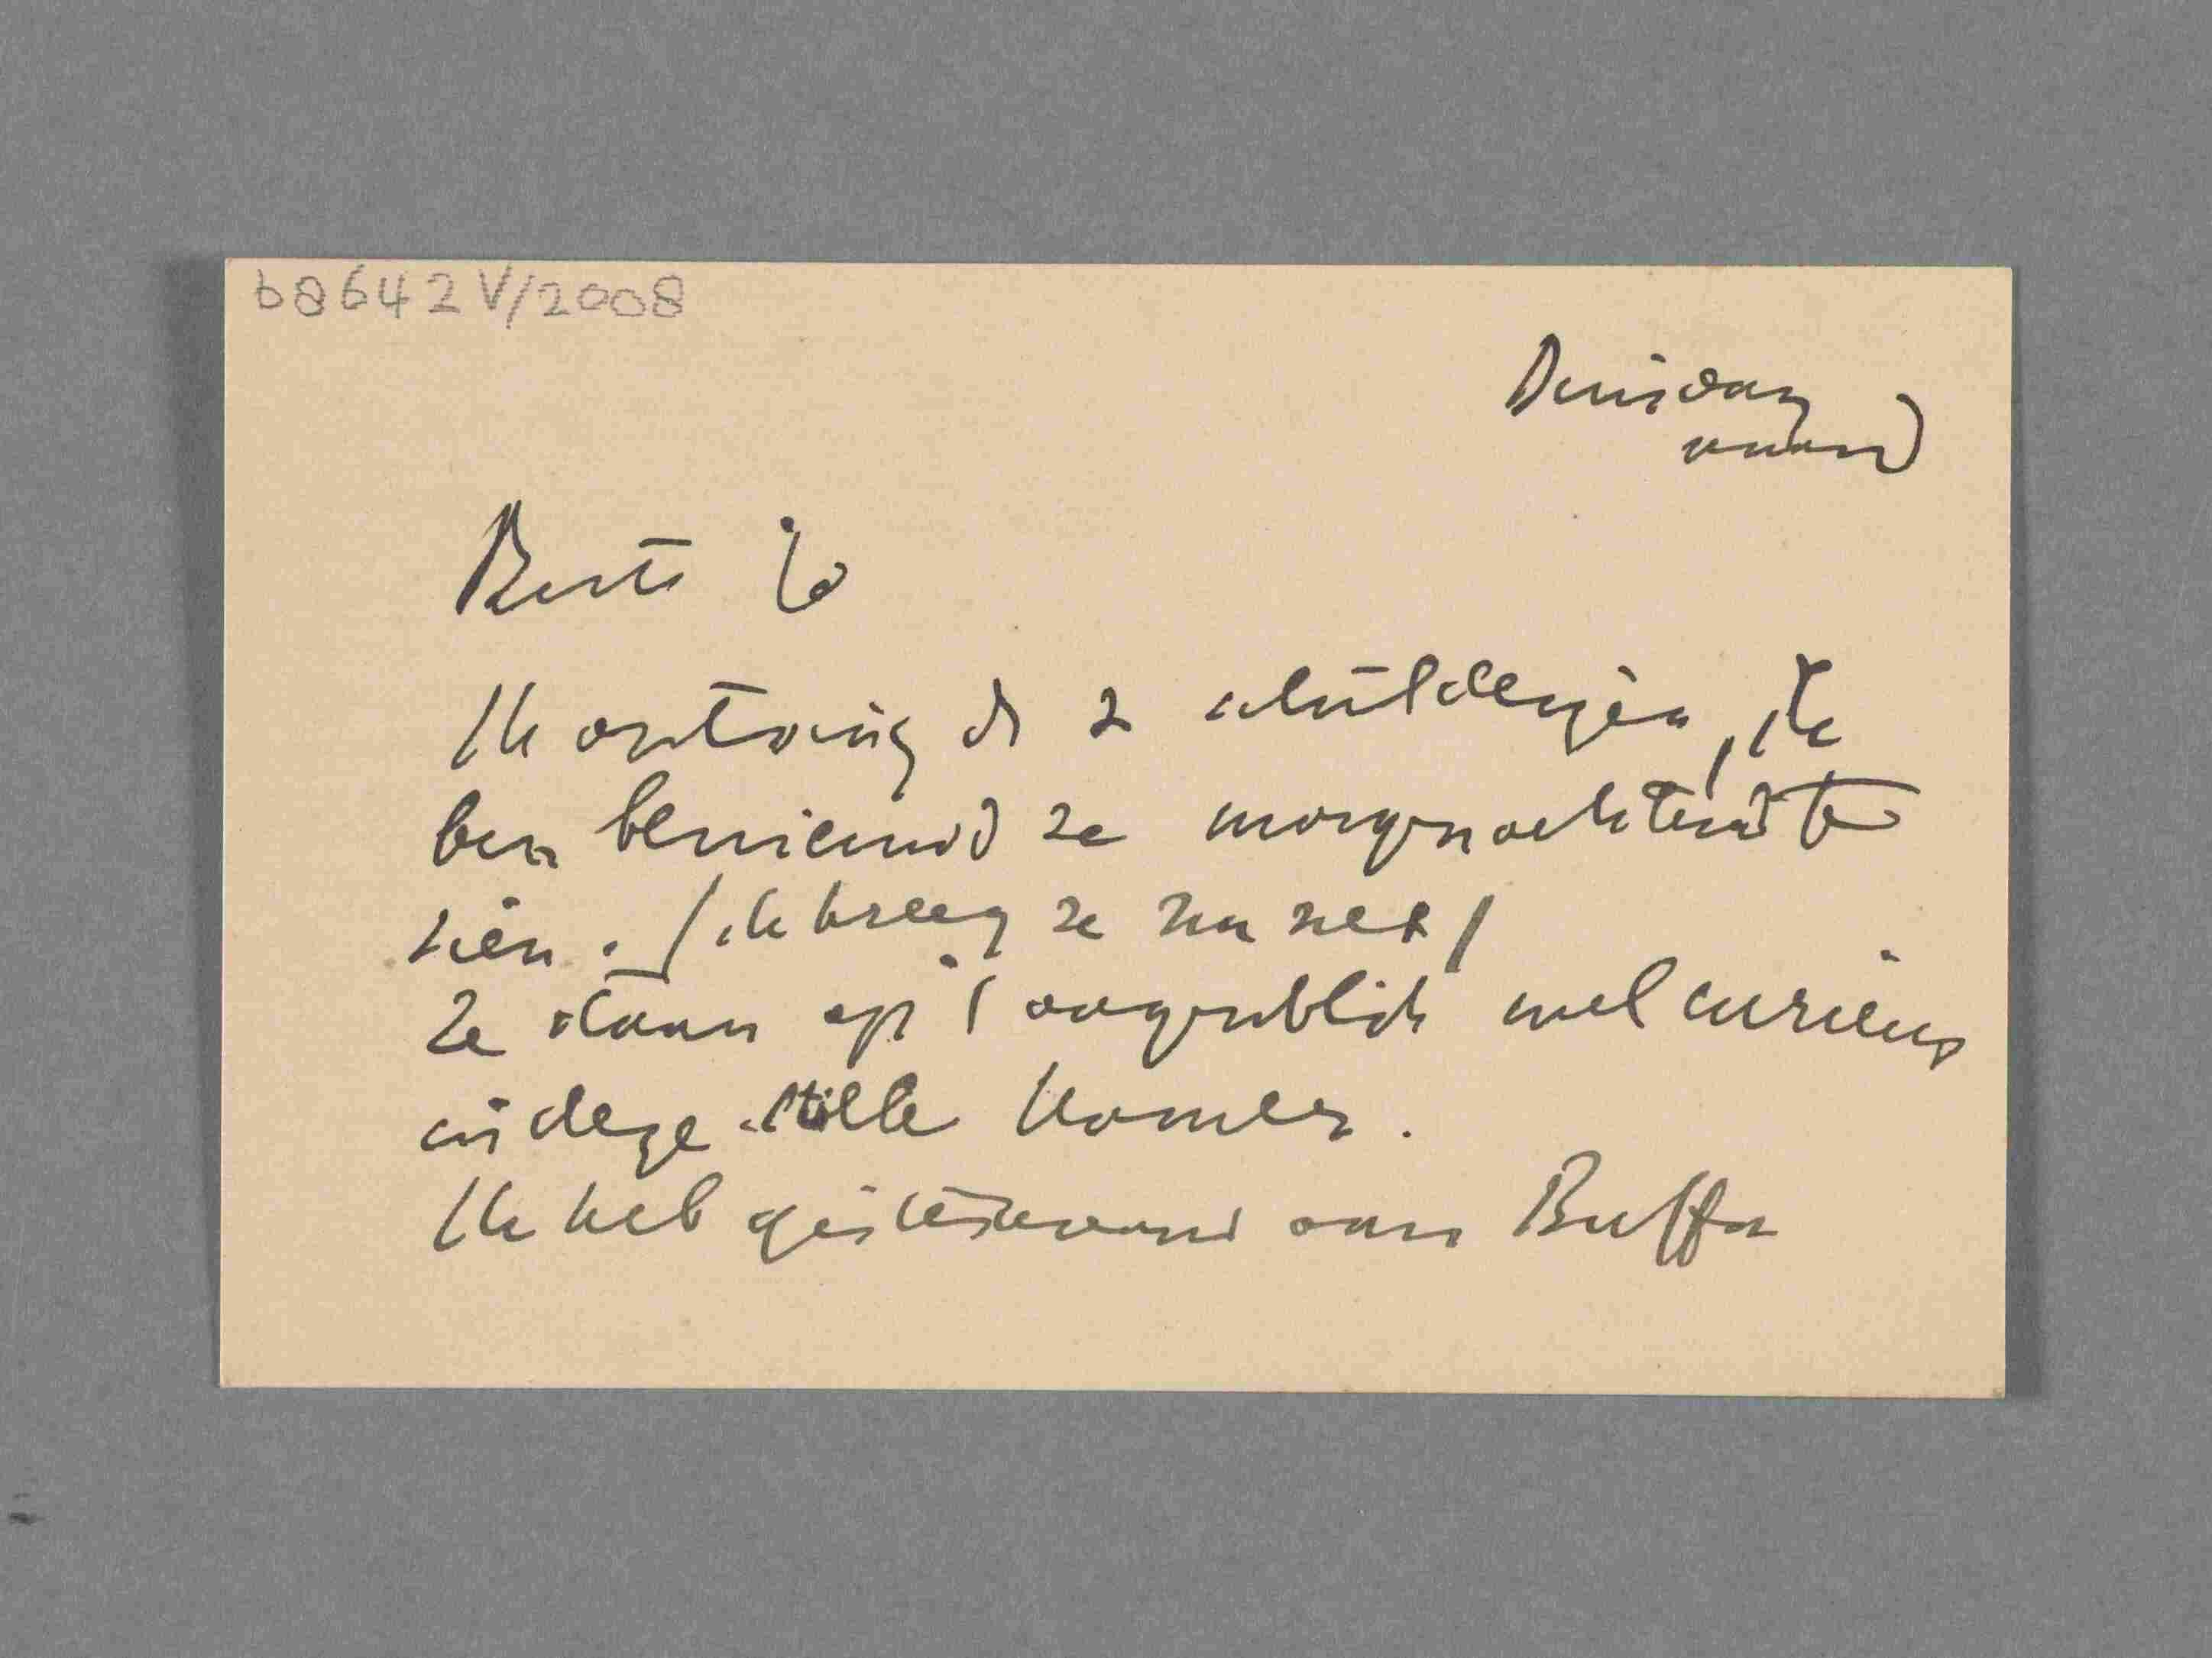 b8642 V/2008
Dinsdag
avond
Beste Jo
Ik ontving de 2 schilderijen, ik
ben benieuwd ze morgenochtend te
zien. / ik kreeg ze nu net /
Ze staan op 't oogenblik wel curieus
in deze stille kamer.
Ik heb gisteravond aan Buffa